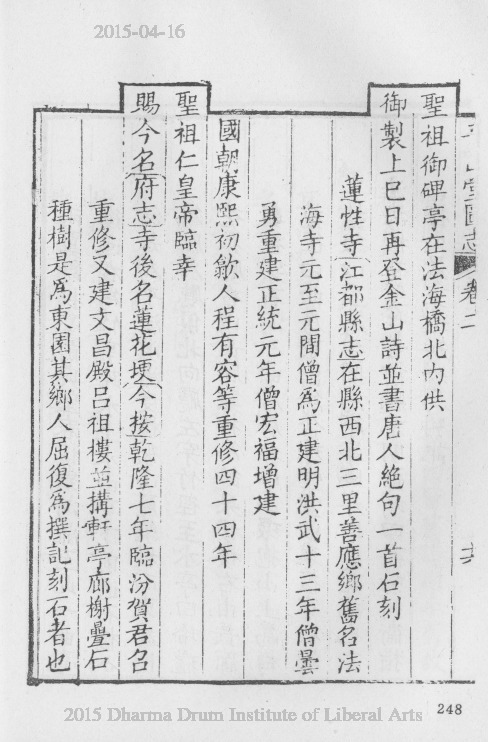 2015-04-16
平山堂圖志 卷二
聖祖御碑亭在法海橋北內供
御製上巳日再登金山詩並書唐人絕句一首石刻
蓮性寺江都縣志在縣西北三里善應鄉舊名法
海寺元至元間僧爲正建明洪武十三年僧曇
勇重建正統元年僧宏福增建
國朝康熙初歙人程有容等重修四十四年
聖祖仁皇帝臨幸
賜今名府志寺後名蓮花埂今按乾隆七年臨汾賀君召
重修又建文昌殿呂祖樓並搆軒亭廊榭疊石
種樹是爲東園其鄉人屈復爲撰記刻石者也
248
2015 Dharma Drum Institute of Liberal Arts